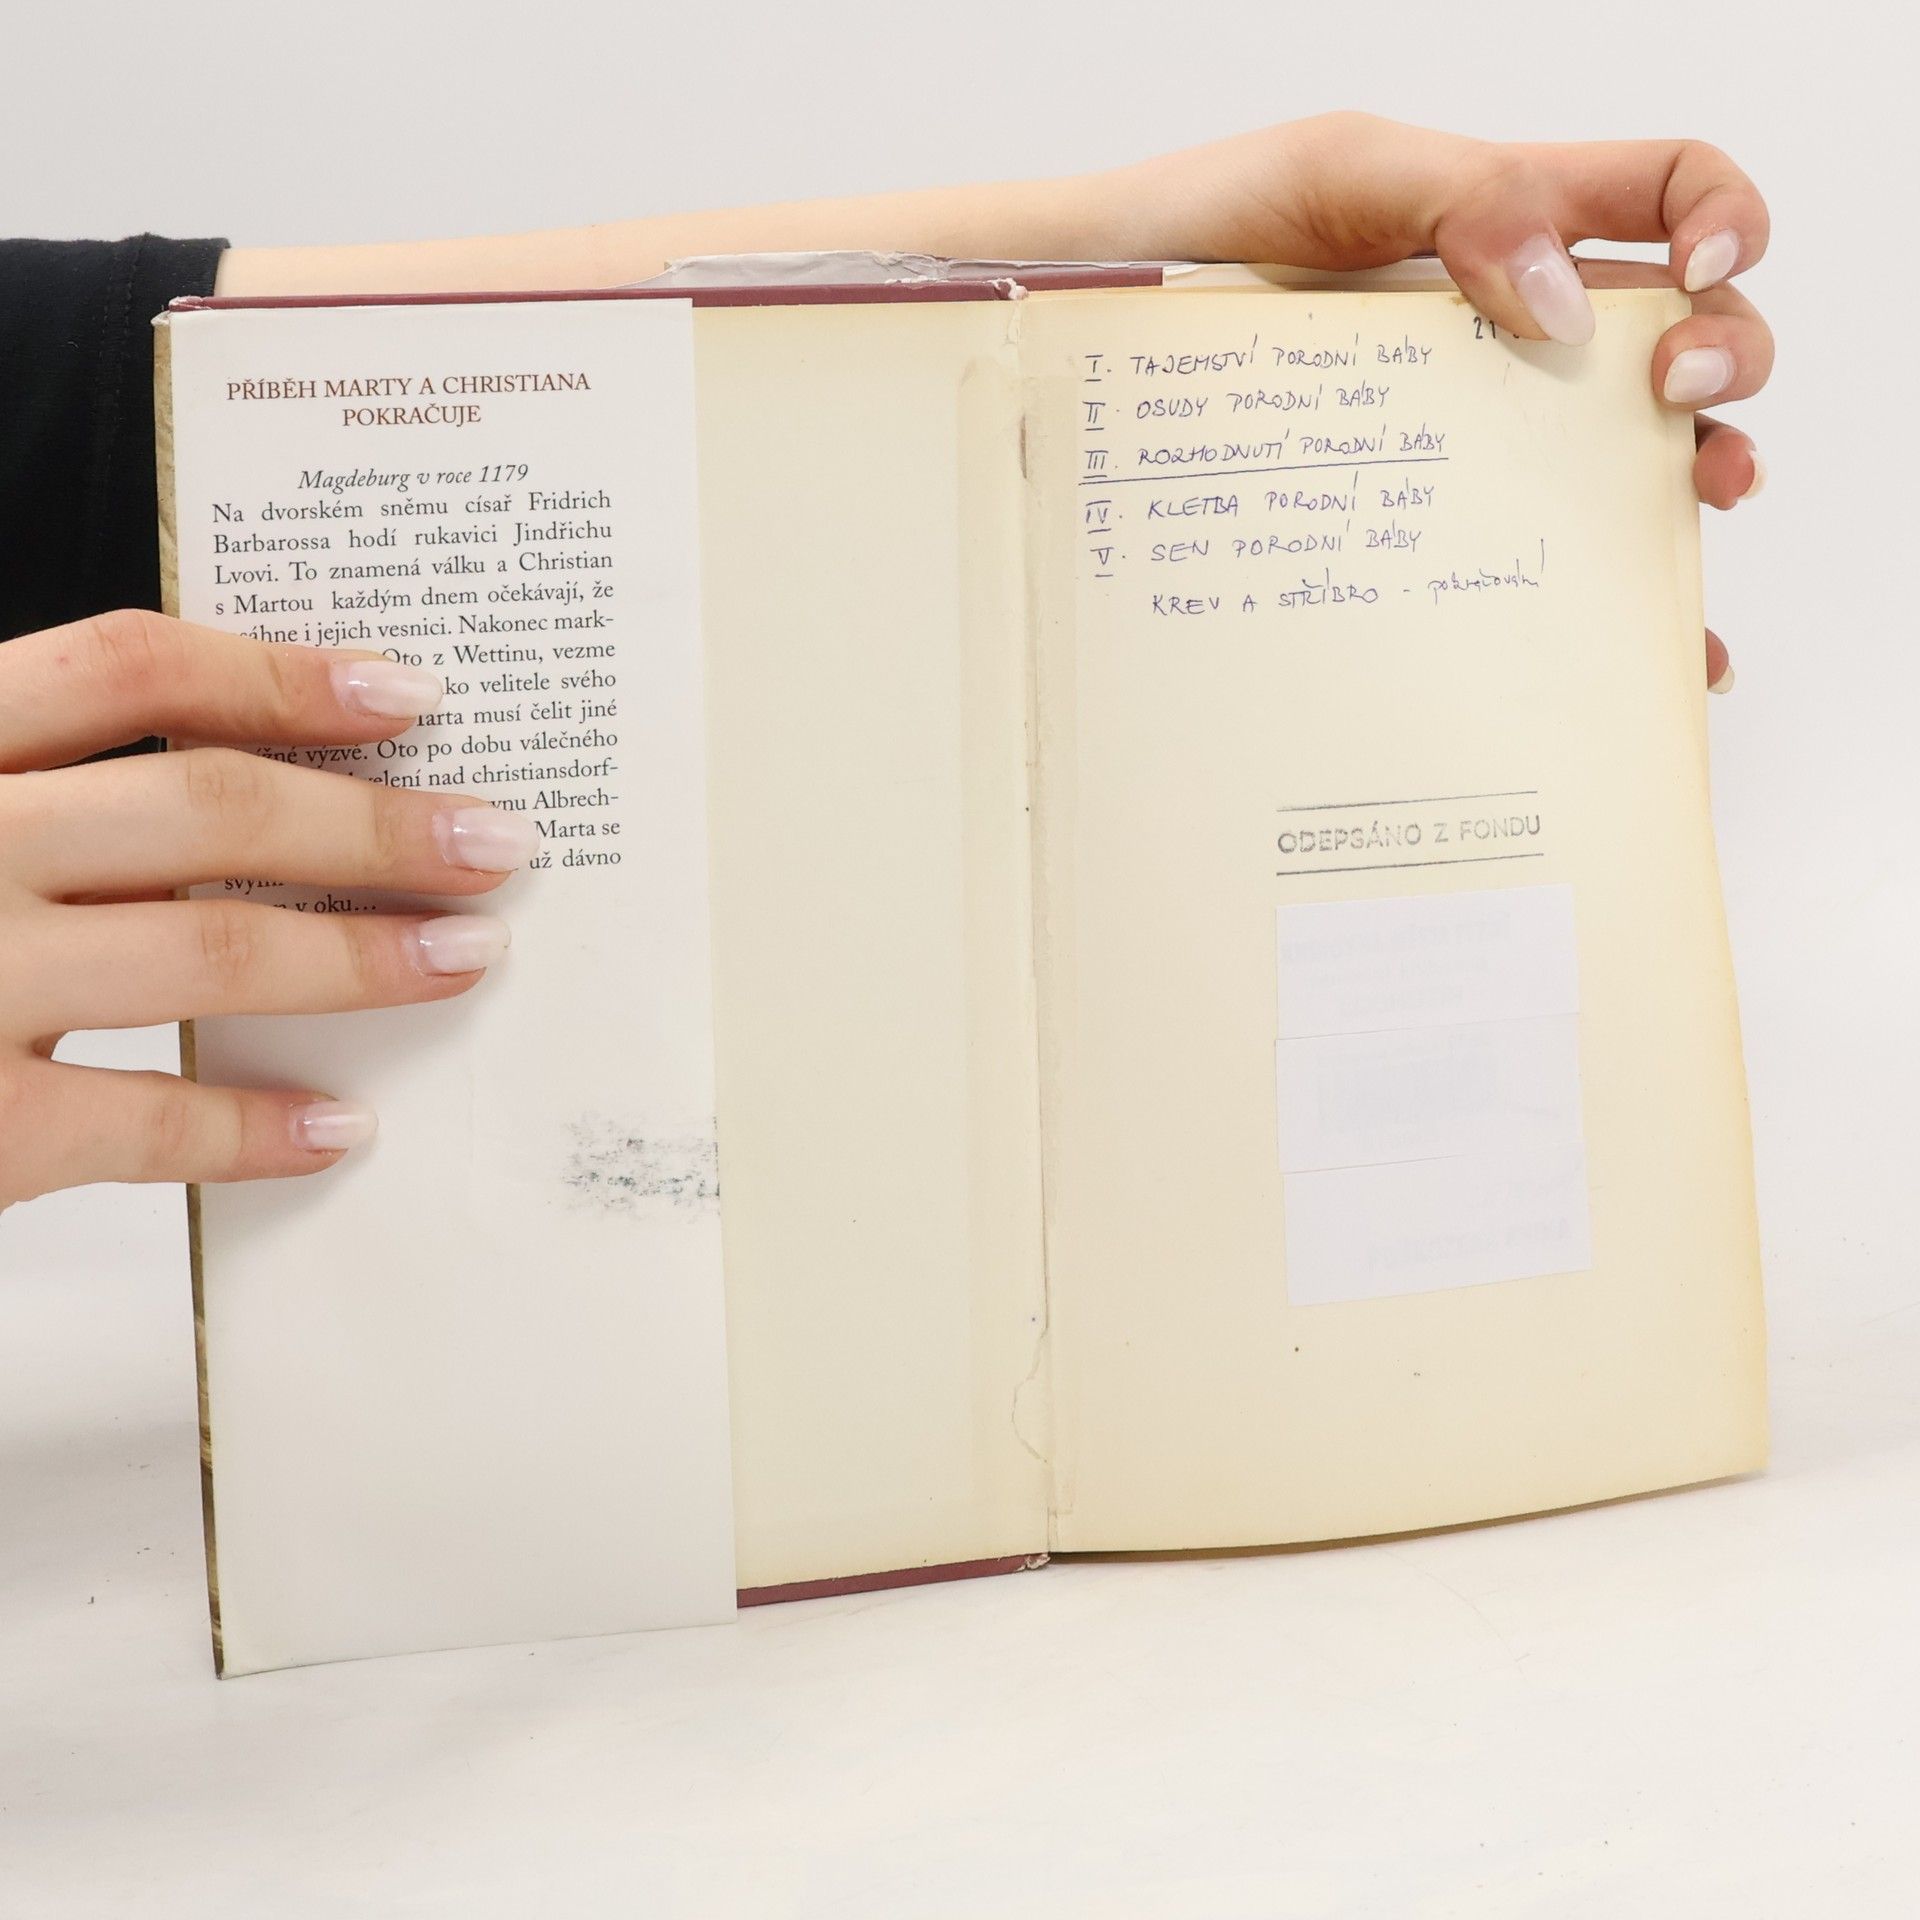 PŘÍBĚH MARTY A CHRISTIANA
POKRAČUJE
Magdeburg v roce 1179
Na dvorském sněmu císař Fridrich
Barbarossa hodí rukavici Jindřichu
Lvovi. To znamená válku a Christian
s Martou každým dnem očekávají, že
i jejich vesnici. Nakonec mark-
Oto z Wettinu, vezme
velitele svého
musí čelit jiné
výzvě. Oto po dobu válečného
nad christiansdorf-
Albrech-
Marta se
už dávno
v oku...
21
I. TAJEMSTVÍ PORODNÍ BÁBY
II. OSUDY PORODNÍ BÁBY
III. ROZHODNUTÍ PORODNÍ BÁBY
IV. KLETBA PORODNÍ BÁBY
V. SEN PORODNÍ BÁBY
KREV A STŘÍBRO - pokračování
ODEPSÁNO Z FONDU